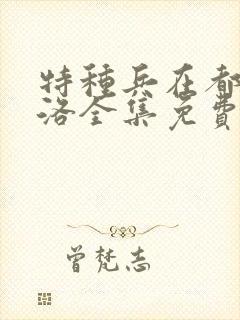 特种兵在都
洛全集免费
曾梵志